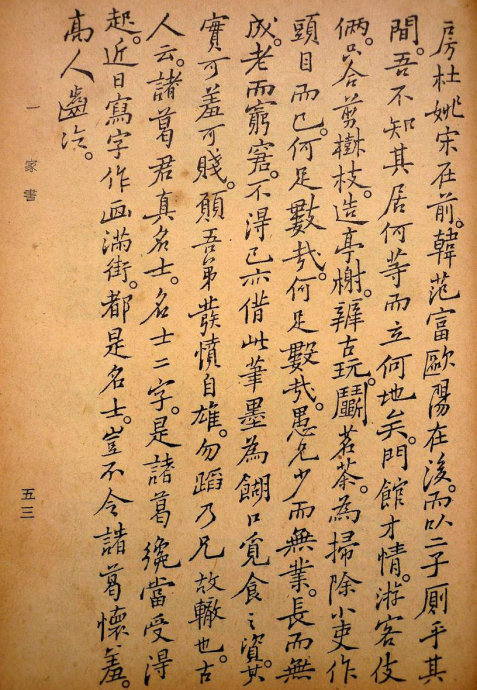 房杜姚宋在前。韓范富歐陽在後。而以二子厠乎其
間。吾不知其居何等而立何地矣。門館才情。游客伎
倆。只合剪樹枝。造亭榭。辨古玩。鬭茗茶。為掃除小吏作
頭目而已。何足數哉。何足數哉。愚兄少而無業。長而無
成。老而窮窘。不得已亦借此筆墨為餬口覓食之資。其
實可羞可賤。願吾弟發憤自雄。勿蹈乃兄故轍也。古
人云。諸葛君真名士。名士二字。是諸葛纔當受得
起。近日寫字作画滿街。都是名士。豈不令諸葛懷羞。
高人齒冷。
一 家書
五三